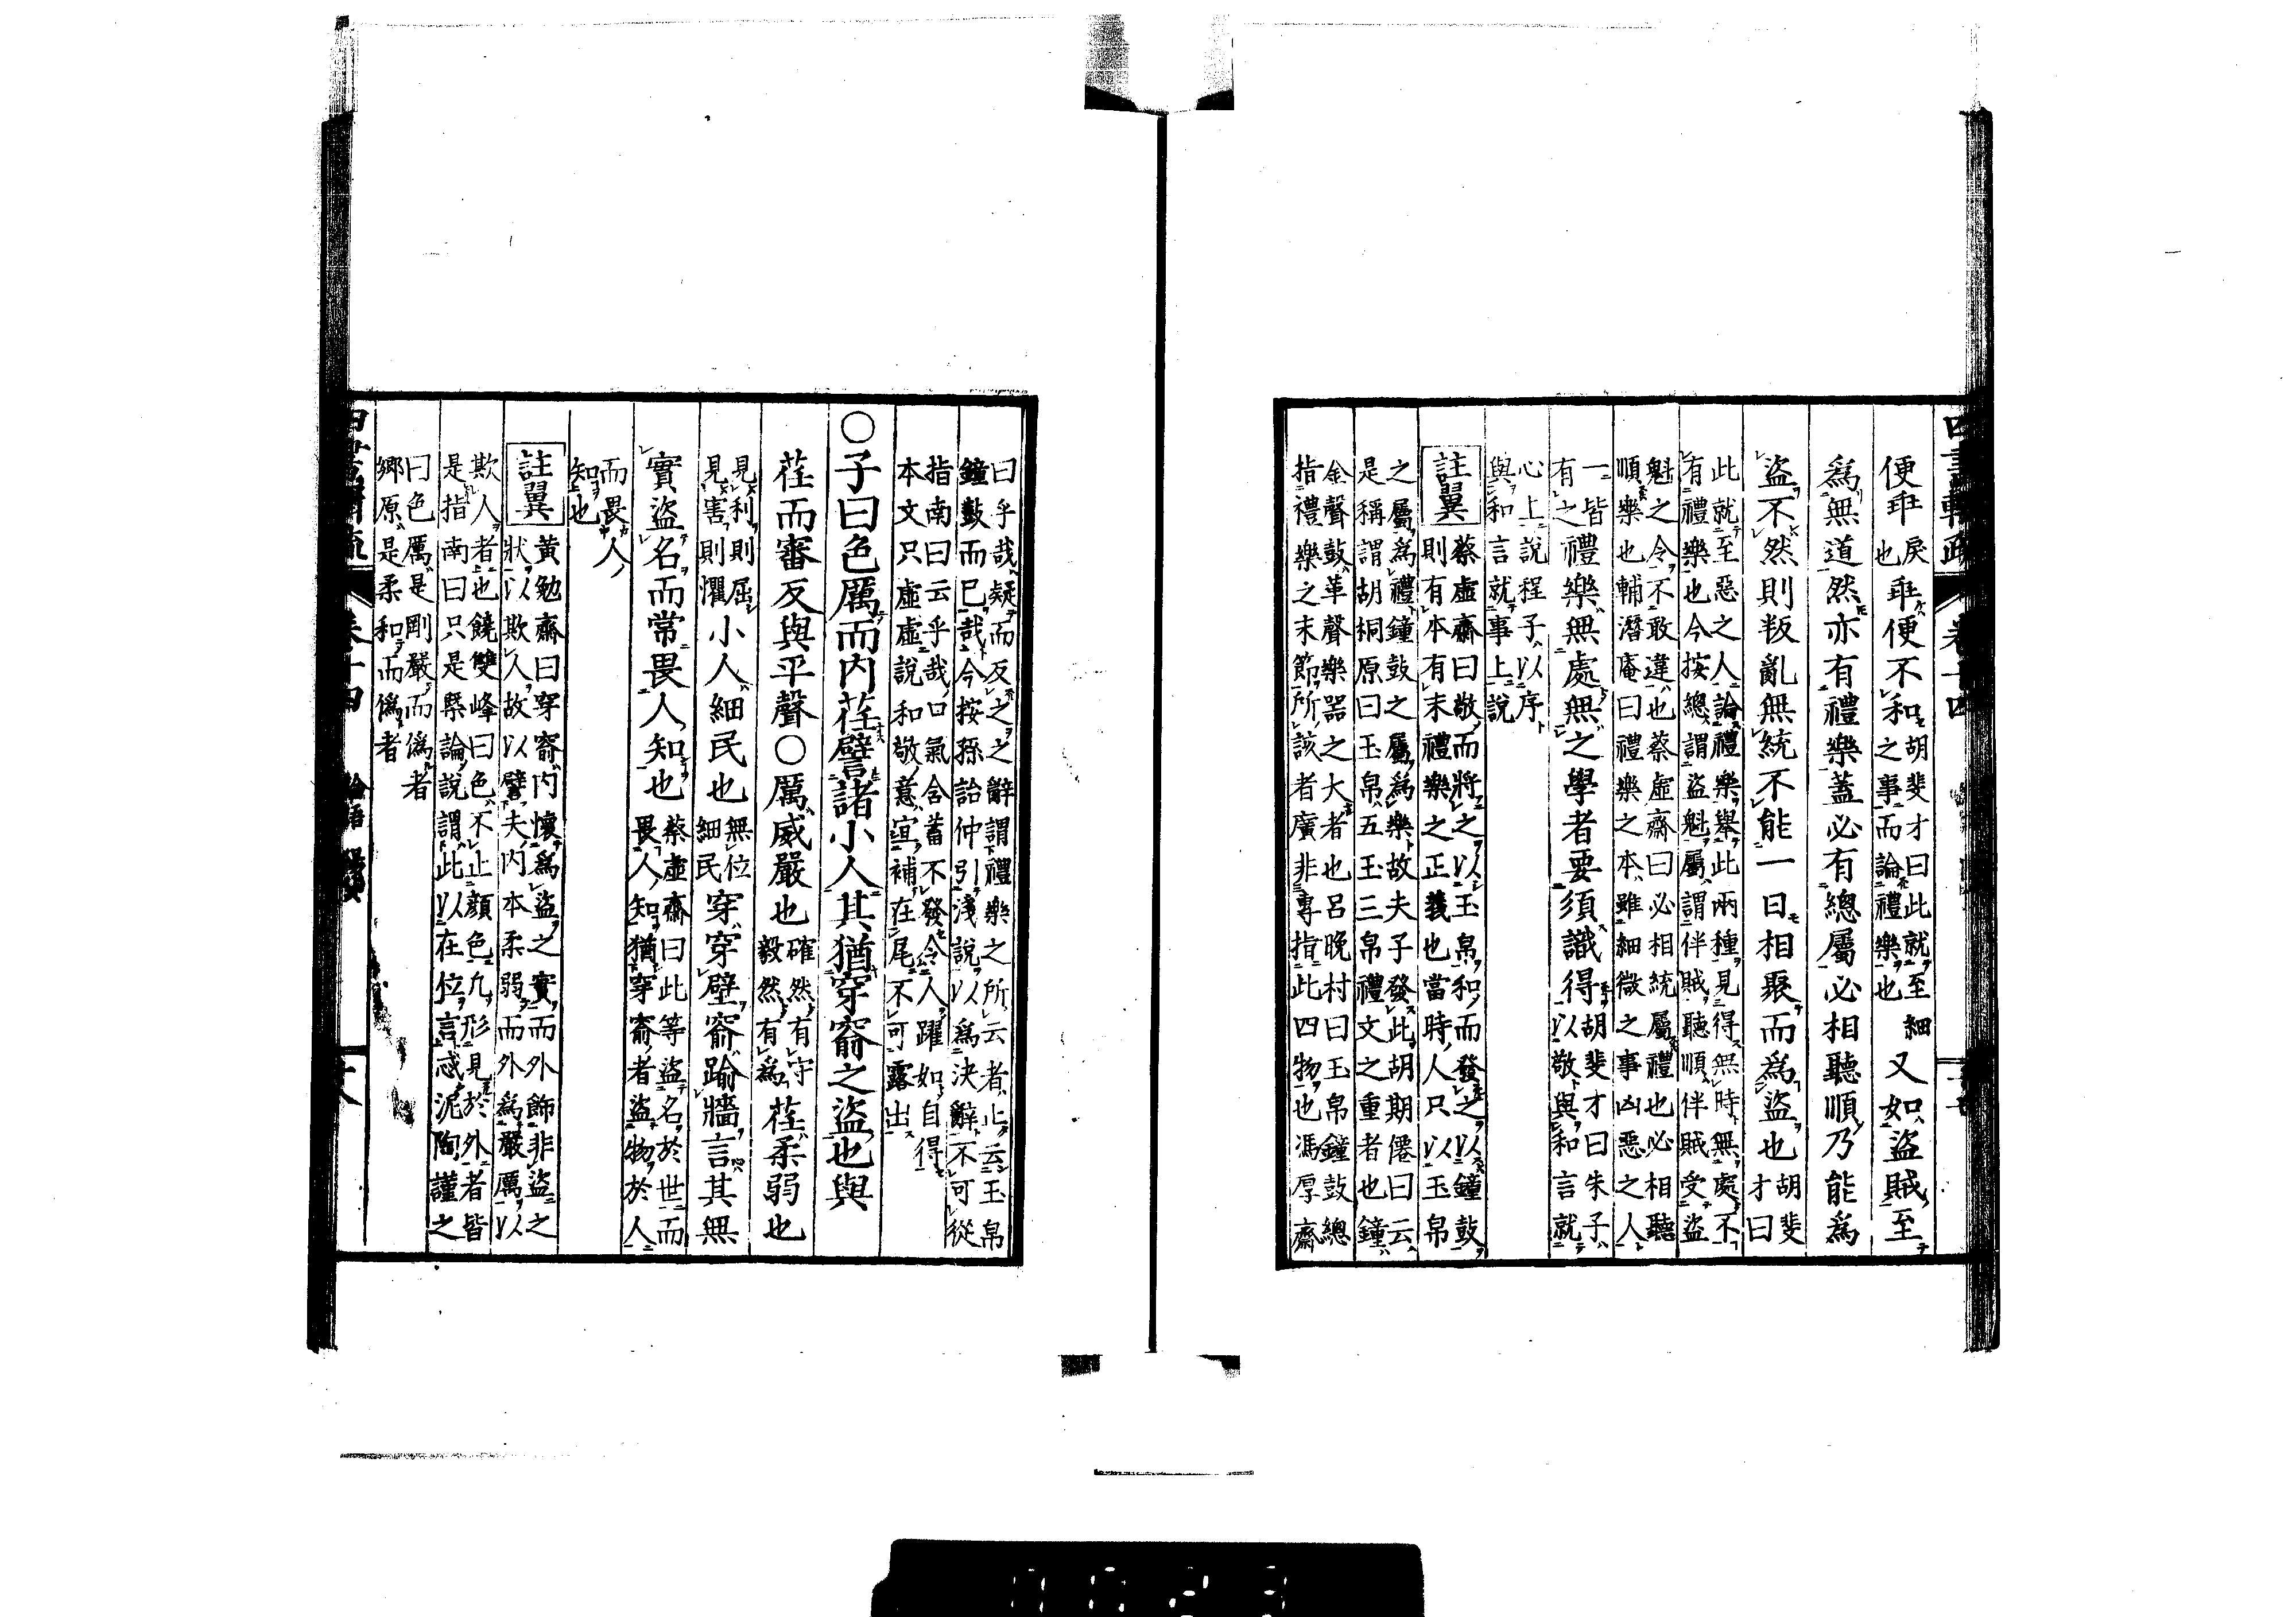 便乖戾也乖便不和之事而論禮樂也胡斐才曰此就至細又如盜賊至
爲無道然亦有禮樂蓋必有總屬必相聽順乃能爲
盜不然則叛亂無統不能一日相聚而爲盜也胡斐才曰
此就至惡之人論禮樂舉此兩種見得無時無處不
有禮樂也今按總謂盜魁屬謂伴賊聽順伴賊受盜
魁之令不敢違也蔡虛齋曰必相統屬禮也必相聽
順樂也輔潛庵曰禮樂之本雖細微之事凶惡之人
一皆
有之禮樂無處無之學者要須識得胡斐才曰朱子
以敬與和言就
心上說程子以序
與和言就事上說
註翼
蔡虛齋曰敬而將之以玉帛和而發之以鐘鼓
則有本有末禮樂之正義也當時人只以玉帛
之屬爲禮鐘鼓之屬爲樂故夫子發此胡期僊曰云
是稱謂胡桐原曰玉帛五玉三帛禮文之重者也鐘
金聲鼓革聲樂器之大者也呂晚村曰玉帛鐘鼓總
指禮樂之末節所該者廣非專指此四物也馮厚齋
曰乎哉疑而反之之辭謂禮樂之所云者止云玉帛
鐘鼓而已哉今按孫詒仲引淺說以爲決辭不可從
指南曰云乎哉口氣含蓄不發令人躍如自得
本文只虛虛說和敬意宜補在尾不可露出
○子曰色厲而內荏譬諸小人其猶穿窬之盜也與
荏而審反與平聲○厲威嚴也確然有守毅然有爲荏柔弱也
見利則屈見害則懼小人細民也無位細民穿穿壁窬踰牆言其無
實盜名而常畏人知也蔡虛齋曰此等盜名於世而
畏人知猶穿窬者盜物於人
而畏人
知也
註翼
黃勉齋曰穿窬內懷爲盜之實而外飾非盜之
狀以欺人故以譬夫內本柔弱而外爲嚴厲以
欺人者也饒雙峰曰色不止顏色凡形見於外者皆
是指南曰只是槩論說謂此以在位言惑泥陶謹之
曰色厲是剛嚴而僞者
鄉原是柔和而僞者
卷十四
論語